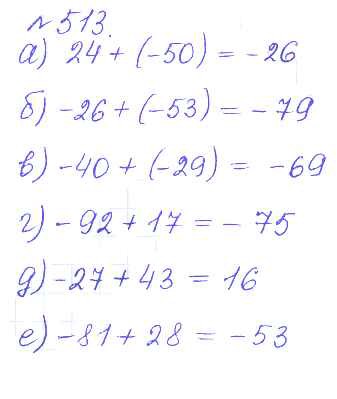 №513.
а) 24 + (-50) = -26
б) -26 + (-53) = -79
в) -40 + (-29) = -69
г) -92 + 17 = -75
д) -27 + 43 = 16
е) -81 + 28 = -53